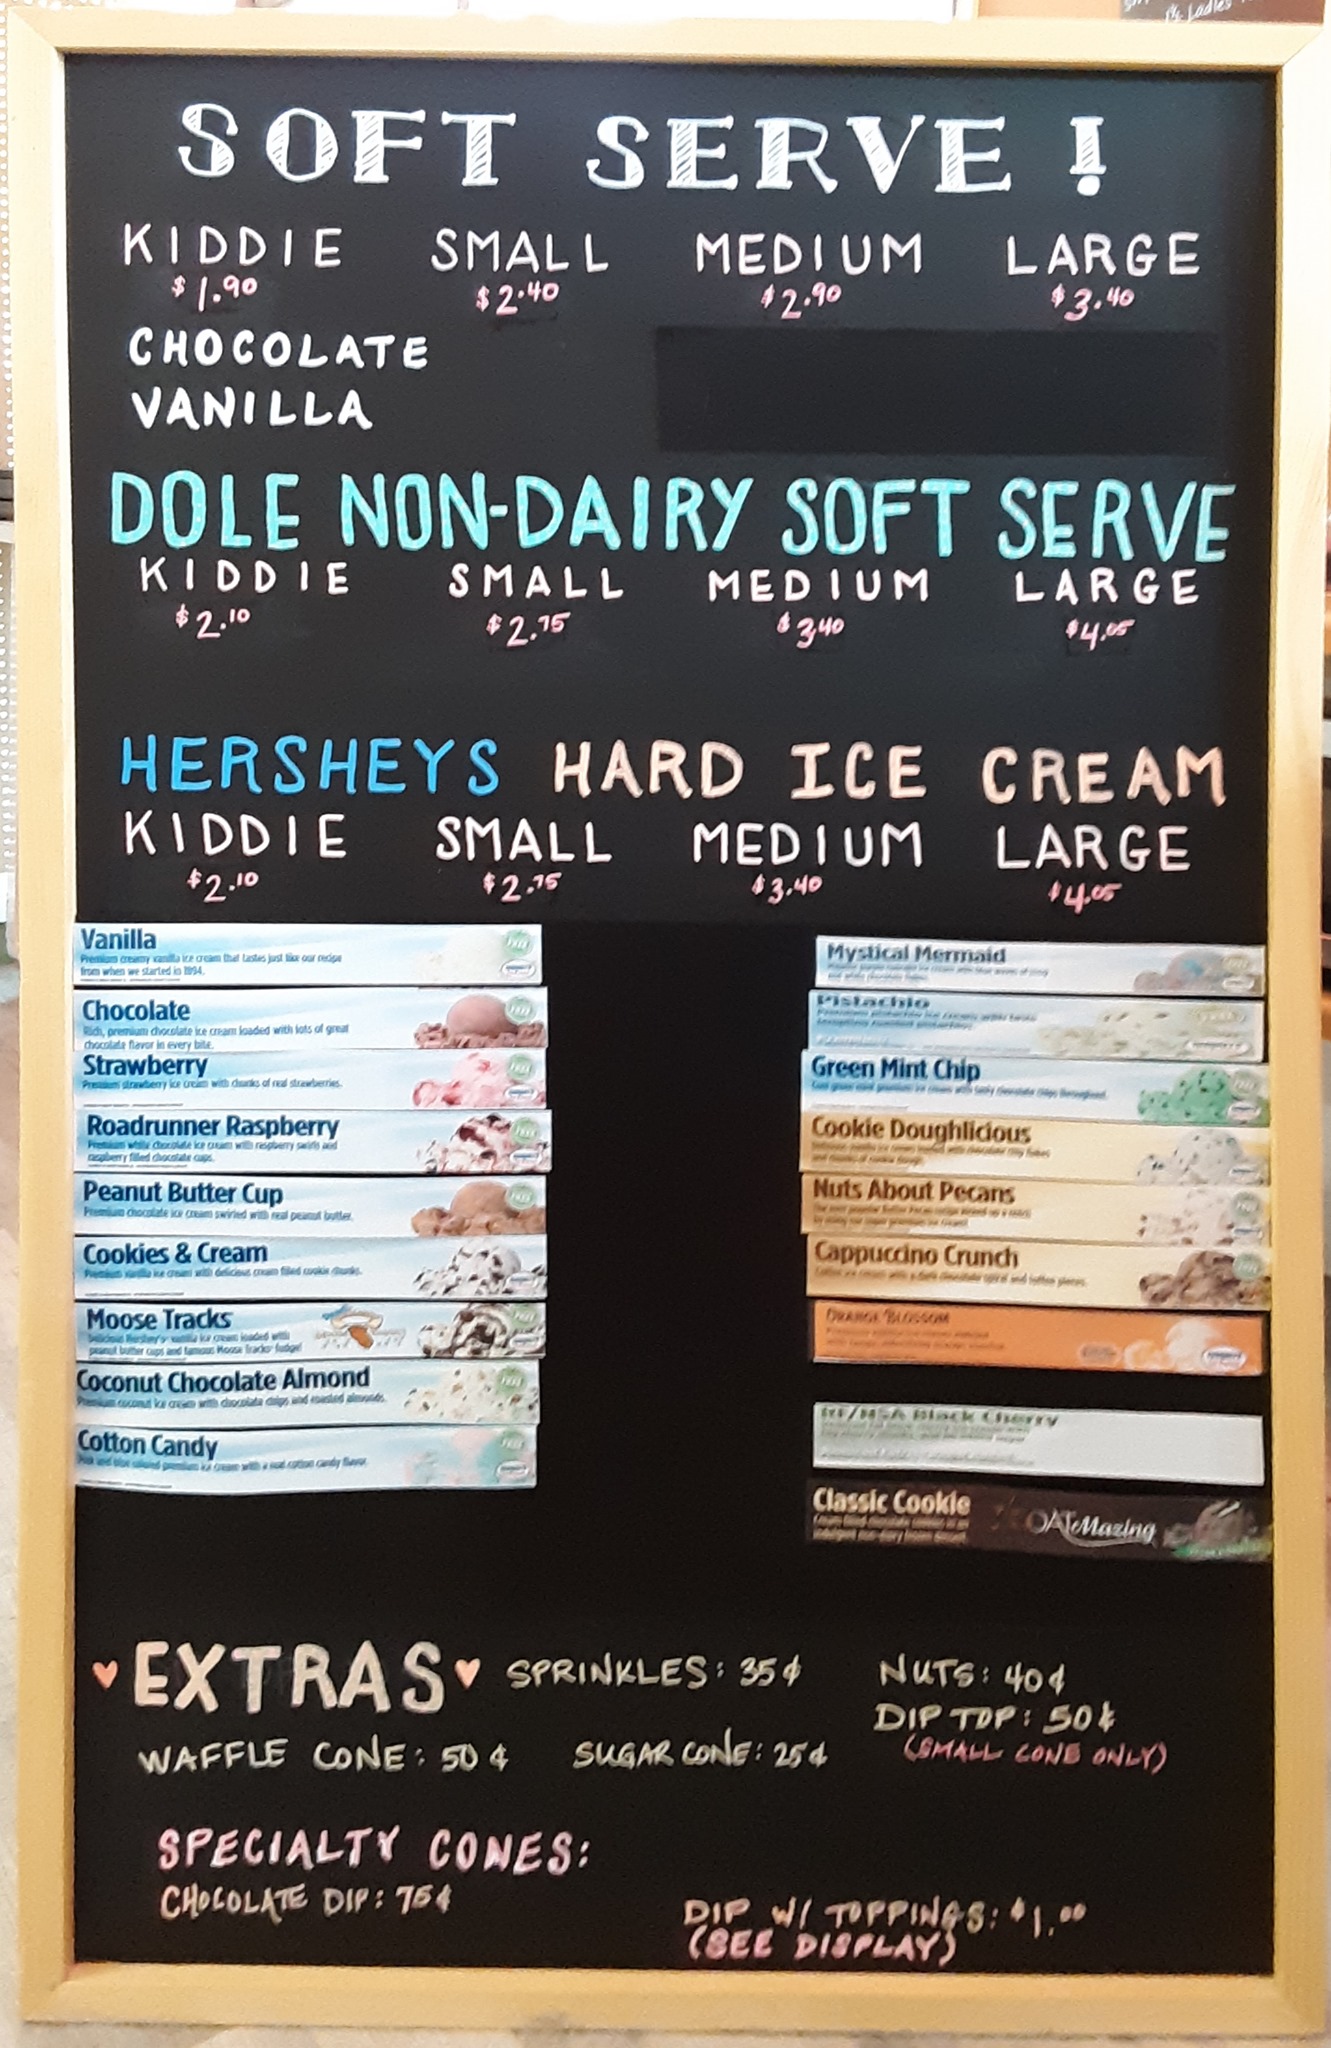 SOFT SERVE!
KIDDIE SMALL MEDIUM LARGE
$1.90 $2.40 $2.90 $3.40
CHOCOLATE
VANILLA
DOLE NON-DAIRY SOFT SERVE
KIDDIE SMALL MEDIUM LARGE
$2.10 $2.75 $3.40 $4.05
HERSHEYS HARD ICE CREAM
KIDDIE SMALL MEDIUM LARGE
$2.10 $2.75 $3.40 $4.05
Vanilla
Premium creamy vanilla ice cream that tastes just like our recipe
from when we started in 1894.
Chocolate
Rich, premium chocolate ice cream loaded with lots of great
chocolate flavor in every bite.
Strawberry
Premium strawberry ice cream with chunks of real strawberries.
Roadrunner Raspberry
Premium white chocolate ice cream with raspberry swirls and
raspberry filled chocolate cups.
Peanut Butter Cup
Premium chocolate ice cream swirled with real peanut butter.
Cookies & Cream
Premium vanilla ice cream with delicious cream filled cookie chunks.
Moose Tracks
Delicious Hershey's vanilla ice cream loaded with
peanut butter cups and famous Moose Tracks fudge!
Coconut Chocolate Almond
Premium coconut ice cream with chocolate chips and roasted almonds.
Cotton Candy
Pink and blue colored premium ice cream with a real cotton candy flavor.
Mystical Mermaid
Pistachio
Green Mint Chip
Cookie Doughlicious
Nuts About Pecans
Cappuccino Crunch
ORANGE BLOSSOM
Black Cherry
Classic Cookie
OATMazing
EXTRAS SPRINKLES: 35¢ NUTS: 40¢
DIP TOP: 50¢
WAFFLE CONE: 50¢ SUGAR CONE: 25¢ (SMALL CONE ONLY)
SPECIALTY CONES:
CHOCOLATE DIP: 75¢ DIP W/ TOPPINGS: $1.00
(SEE DISPLAY)